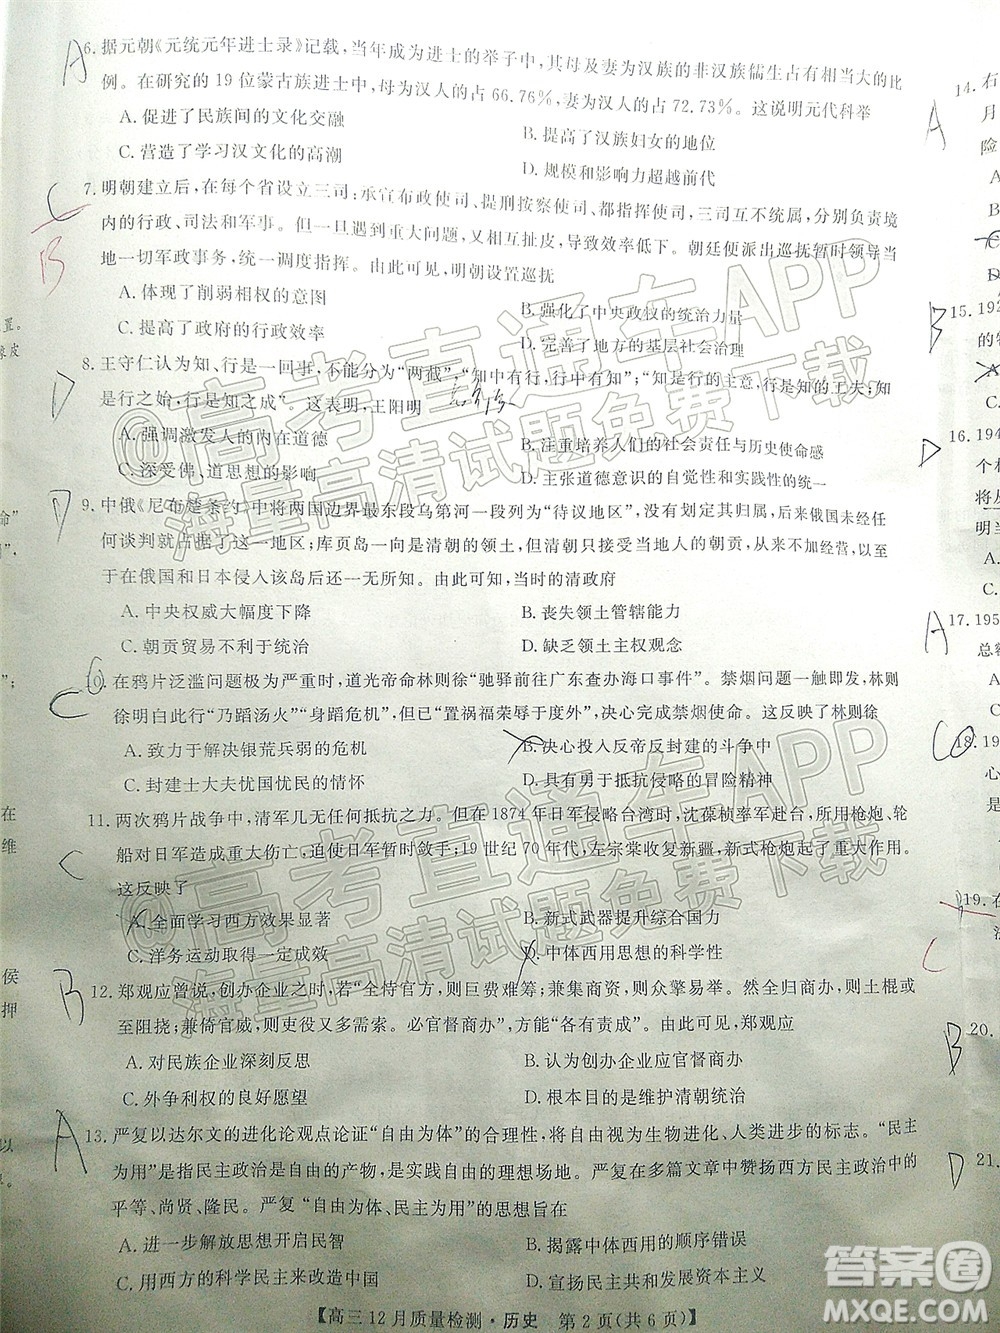 A
6. 据元朝《元统元年进士录》记载，当年成为进士的举子中，其母及妻为汉族的非汉族儒生占有相当大的比
例。在研究的 19 位蒙古族进士中，母为汉人的占 66.76%，妻为汉人的占 72.73%。这说明元代科举
A. 促进了民族间的文化交融 B. 提高了汉族妇女的地位
C. 营造了学习汉文化的高潮 D. 规模和影响力超越前代
C
B
7. 明朝建立后，在每个省设立三司：承宣布政使司、提刑按察使司、都指挥使司，三司互不统属，分别负责境
内的行政、司法和军事。但一旦遇到重大问题，又相互扯皮，导致效率低下。朝廷便派出巡抚暂时领导当
地一切军政事务，统一调度指挥。由此可见，明朝设置巡抚
A. 体现了削弱相权的意图 B. 强化了中央政权的统治力量
C. 提高了政府的行政效率 D. 完善了地方的基层社会治理
D
8. 王守仁认为知、行是一回事，不能分为“两截”，“知中有行，行中有知”；“知是行的主意，行是知的工夫；知
是行之始，行是知之成”。这表明，王阳明
A. 强调激发人的内在道德 B. 注重培养人们的社会责任与历史使命感
C. 深受佛、道思想的影响 D. 主张道德意识的自觉性和实践性
D
9. 中俄《尼布楚条约》中将两国边界最东段乌第河一段列为“待议地区”，以待勘定其归属，后俄国未经任
何谈判就占据了这一地区；库页岛一向是清朝的领土，但清朝仅满足于当地人的朝贡，并未实施管辖，以
至于在俄国和日本侵入该岛后还一无所知。由此可知，当时的清政府
A. 中央权威大幅度下降 B. 丧失领土管辖能力
C. 朝贡贸易不利于统治 D. 缺乏领土主权观念
C
10. 在鸦片泛滥问题极为严重时，道光帝命林则徐“驰驿前往广东查办海口事件”。禁烟问题一波三折，林则
徐明白此行“乃蹈汤火”“身蹈危机”，但已“置祸福荣辱于度外”，决心完成禁烟使命。这突出反映了林则徐
A. 致力于解决银荒兵弱的危机 B. 决心投入反帝反封建的斗争中
C. 封建士大夫忧国忧民的情怀 D. 具有勇于抵抗侵略的冒险精神
C
11. 两次鸦片战争中，清军几无任何抵抗之力。但在 1874 年日军侵略台湾时，沈葆桢率军赴台，所用枪炮、轮
船对日军造成重大伤亡，迫使日军暂时敛手；19 世纪 70 年代，左宗棠收复新疆，新式枪炮起了重大作用。
这反映了
A. 全面学习西方效果显著 B. 新式武器提升综合国力
C. 洋务运动取得一定成效 D. 中体西用思想的科学性
B
12. 郑观应曾说，创办企业之时，若“全恃官方，则巨费难筹；兼集商资，则众擎易举。然全归商办，则土棍或
至阻挠；兼倚官威，则吏役又多需索。必官督商办”，方能“各有责成”。由此可见，郑观应
A. 对民族企业深刻反思 B. 认为创办企业应官督商办
C. 外争利权的良好愿望 D. 根本目的是维护清朝统治
A
13. 严复以达尔文的进化论观点论证“自由为体”的合理性，将自由视为生物进化、人类进步的标志。“民主
为用”是指民主政治是自由的产物，是实践自由的理想场地。严复在多篇文章中赞扬西方民主政治中的
平等、尚贤、隆民。严复“自由为体、民主为用”的思想旨在
A. 进一步解放思想开启民智 B. 揭露中体西用的顺序错误
C. 用西方的科学民主来改造中国
【高三 12 月质量检测·历史 第 2 页(共 6 页)】
置。
命”
”；
在
维
侯
押
以
14. 右
月
险
A
A
B
C
D
15. 192
的
B
A
16. 194
个
将
明
A
C
D
17. 195
总
A
18. 19
心
A
C
C
19. 在
法
C
20.
B
21.
D
@高考直通车APP
海量高清试题免费下载
@高考直通车APP
海量高清试题免费下载
答案圈
MXQE.COM